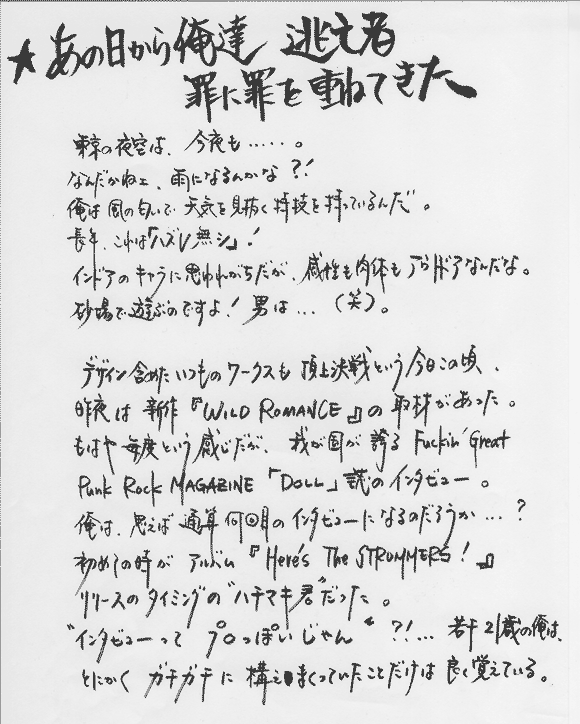 ★あの日から俺達 逃亡者
罪に罪を重ねてきた
東京の夜空は、今夜も……。
なんだかねェ、雨になるんかな?!
俺は風の匂いで天気を見抜く特技を持っているんだ。
長年、これは「ハズレ無シ」!
インドアのキャラに思われがちだが、感性も肉体もアウトドアなんだな。
砂場で遊ぶのですよ!男は…(笑)。
デザイン含めたいつものワークスも頂上決戦という今日この頃、
昨夜は新作『WILD ROMANCE』の取材があった。
もはや毎度という感じだが、我が国が誇る Fuckin' Great
Punk Rock MAGAZINE「DOLL」誌のインタビュー。
俺は、思えば通算何回目のインタビューになるのだろうか…?
初めての時がアルバム『Here's The STRUMMERS!』
リリースのタイミングの"ハチマキ君"だった。
"インタビューって プロっぽいじゃん" ?!… 若干21歳の俺は、
とにかく ガチガチに 構えまくっていたことだけは 良く覚えている。